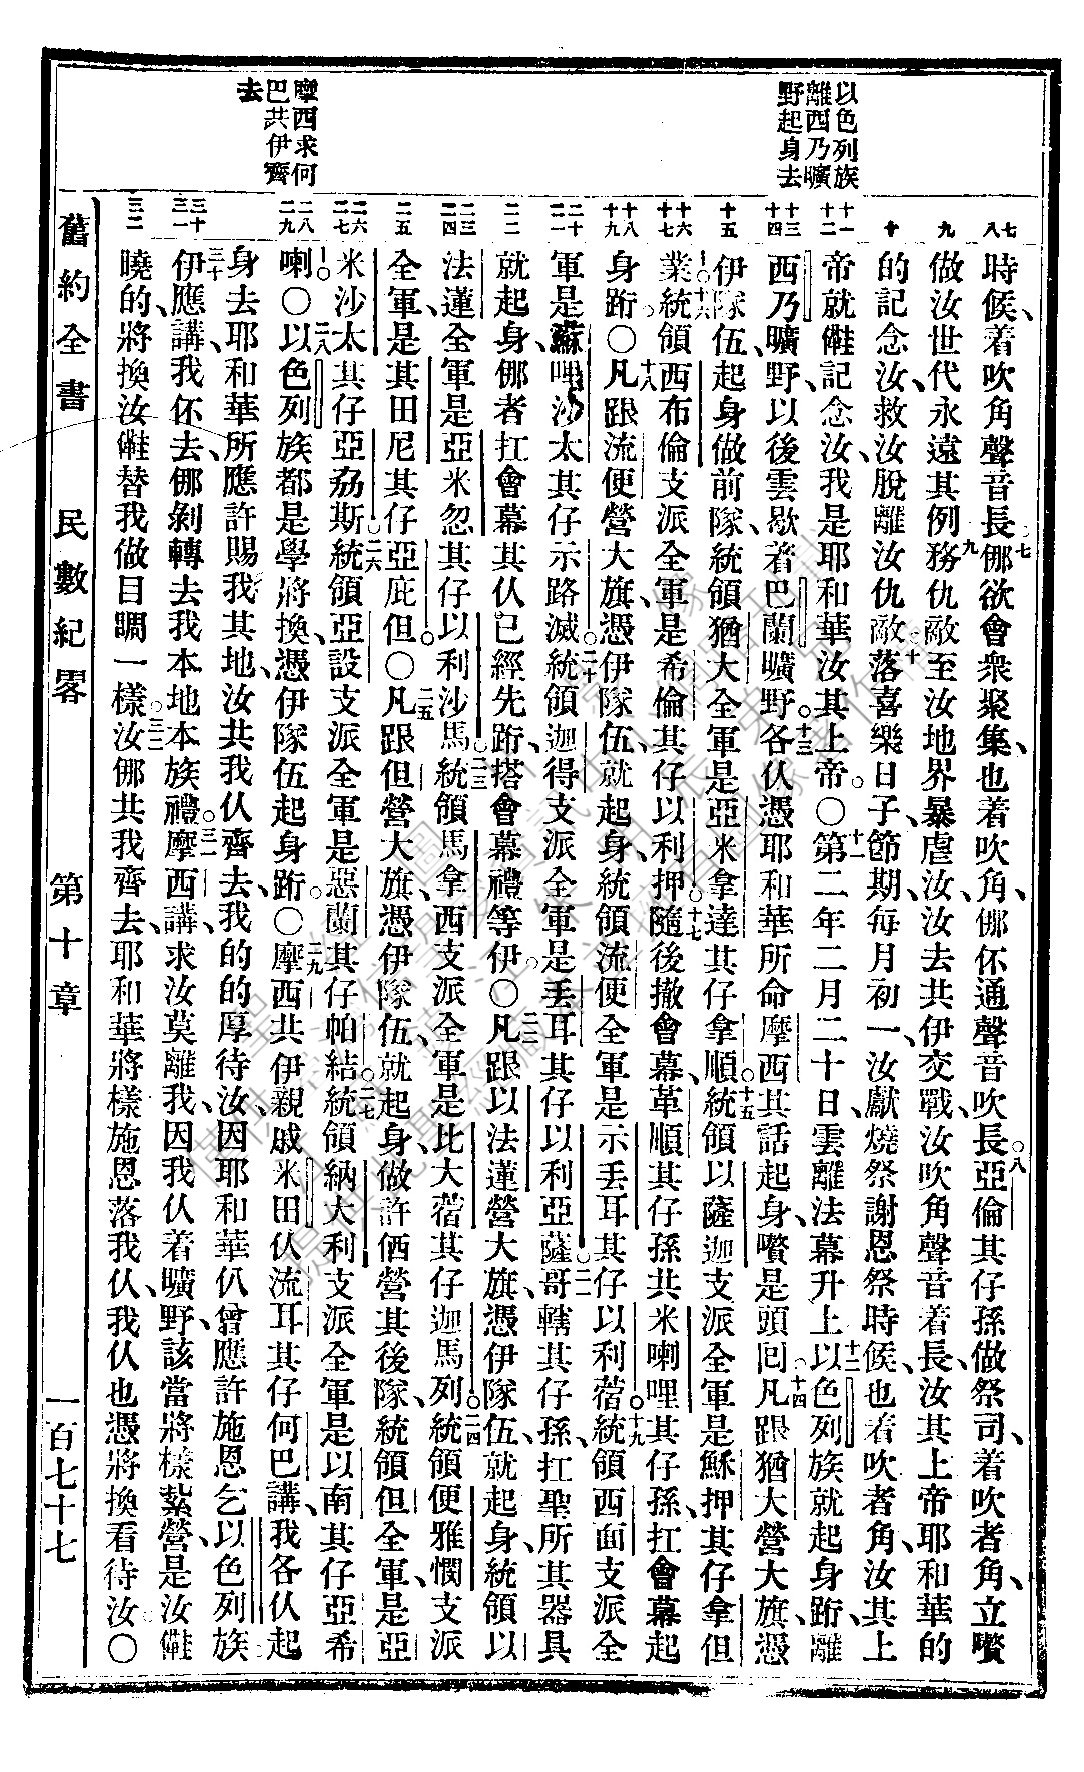 以色列族
離西乃曠
野起身去
摩西求何
巴共伊齊
去
七
八
九
十
十一
十二
十三
十四
十五
十六
十七
十八
十九
二十
二一
二二
二三
二四
二五
二六
二七
二八
二九
三十
三一
三二
時候、着吹角聲音長。七㑚欲會衆聚集、也着吹角、㑚伓通聲音吹長。八亞倫其仔孫做祭司、着吹者角、立嚽
做汝世代永遠其例。九務仇敵至汝地界暴虐汝、汝去共伊交戰、汝吹角聲音着長、汝其上帝耶和華的
的記念汝、救汝脫離汝仇敵。十落喜樂日子、節期、每月初一、汝獻燒祭謝恩祭時候、也着吹者角、汝其上
帝就㒰記念汝、我是耶和華汝其上帝。〇十一第二年二月二十日、雲離法幕升上。十二以色列族就起身跀離
西乃曠野、以後雲歇着巴蘭曠野。十三各仈憑耶和華所命摩西其話起身、嚽是頭囘。十四凡跟猶大營大旗、憑
伊隊伍、起身做前隊、統領猶大全軍是亞米拿達其仔拿順。十五統領以薩迦支派全軍是穌押其仔拿但
業。十六統領西布倫支派全軍是希倫其仔以利押。十七隨後撤會幕、革順其仔孫共米喇哩其仔孫、扛會幕起
身跀。〇十八凡跟流便營大旗、憑伊隊伍、就起身、統領流便全軍是示丟耳其仔以利蓿。十九統領西面支派全
軍是蘇哩沙太其仔示路滅。二十統領迦得支派全軍是丟耳其仔以利亞薩。二一哥轄其仔孫、扛聖所其器具
就起身、㑚者扛會幕其仈已經先跀、搭會幕禮等伊。〇二二凡跟以法蓮營大旗、憑伊隊伍、就起身、統領以
法蓮全軍是亞米忽其仔以利沙馬。二三統領馬拿西支派全軍是比大蓿其仔迦馬列。二四統領便雅憫支派
全軍是其田尼其仔亞庇但。〇二五凡跟但營大旗、憑伊隊伍、就起身、做許俩營其後隊、統領但全軍、是亞
米沙太其仔亞刕斯。二六統領亞設支派全軍是惡蘭其仔帕結。二七統領納大利支派全軍是以南其仔亞希
喇。〇二八以色列族都是學將換、憑伊隊伍起身跀。〇二九摩西共伊親戚米田仈流耳其仔何巴講、我各仈起
身去耶和華所應許賜我其地、汝共我仈齊去、我的的厚待汝、因耶和華仈曾應許施恩乞以色列族
三十伊應講、我伓去、㑚剝轉去我本地本族禮。三一摩西講、求汝莫離我、因我仈着曠野、該當將樣紮營、是汝㒰
曉的、將換汝㒰替我做目睭一樣。三二汝㑚共我齊去、耶和華將樣施恩落我仈、我仈也憑將換看待汝。〇
舊約全書　民數紀畧　第十章　一百七十七